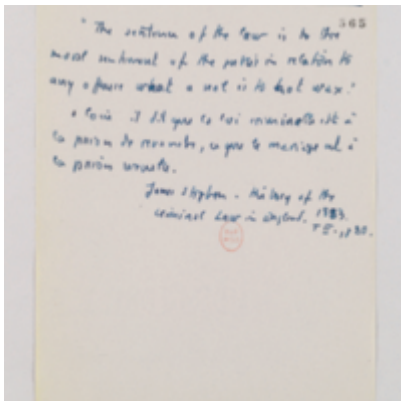 365
"The sentence of the law is to the
moral sentiment of the public in relation to
any offence what a seal is to hot wax."
Stephen dit que la loi criminelle est à
la passion de , ce que le mariage est à
la passion sexuelle.
James Stephen. History of the
Criminal Law in England. 1883.